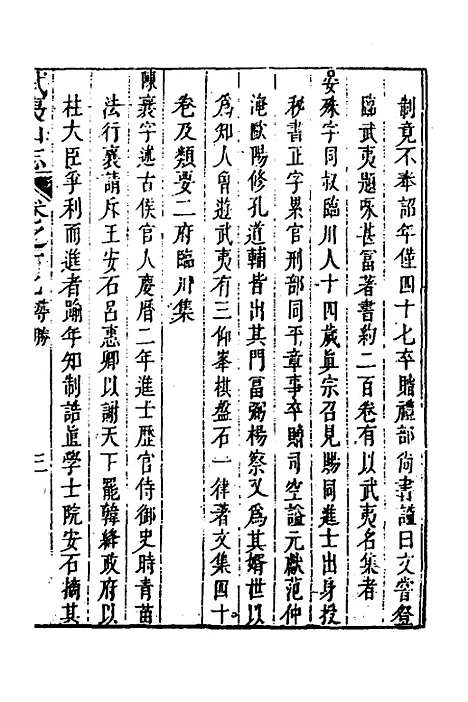 制竟不奉詔年僅四十七卒贈禮部尚書諡曰文嘗登
臨武夷題咏甚富著書約二百卷有以武夷名集者
晏殊字同叔臨川人十四歲眞宗召見賜同進士出身授
秘書正字累官刑部同平章事卒贈司空諡元獻范仲
淹歐陽修孔道輔皆出其門富弼楊察又爲其婿世以
爲知人曾遊武夷有三仰峯棋盤石一律著文集四十
卷及類要二府臨川集
陳襄字述古侯官人慶曆二年進士歷官侍御史時青苗
法行襄請斥王安石呂惠卿以謝天下罷韓絳政府以
杜大臣爭利而進者踰年知制誥直學士院安石摘其
武夷山志 卷之 尋勝 三